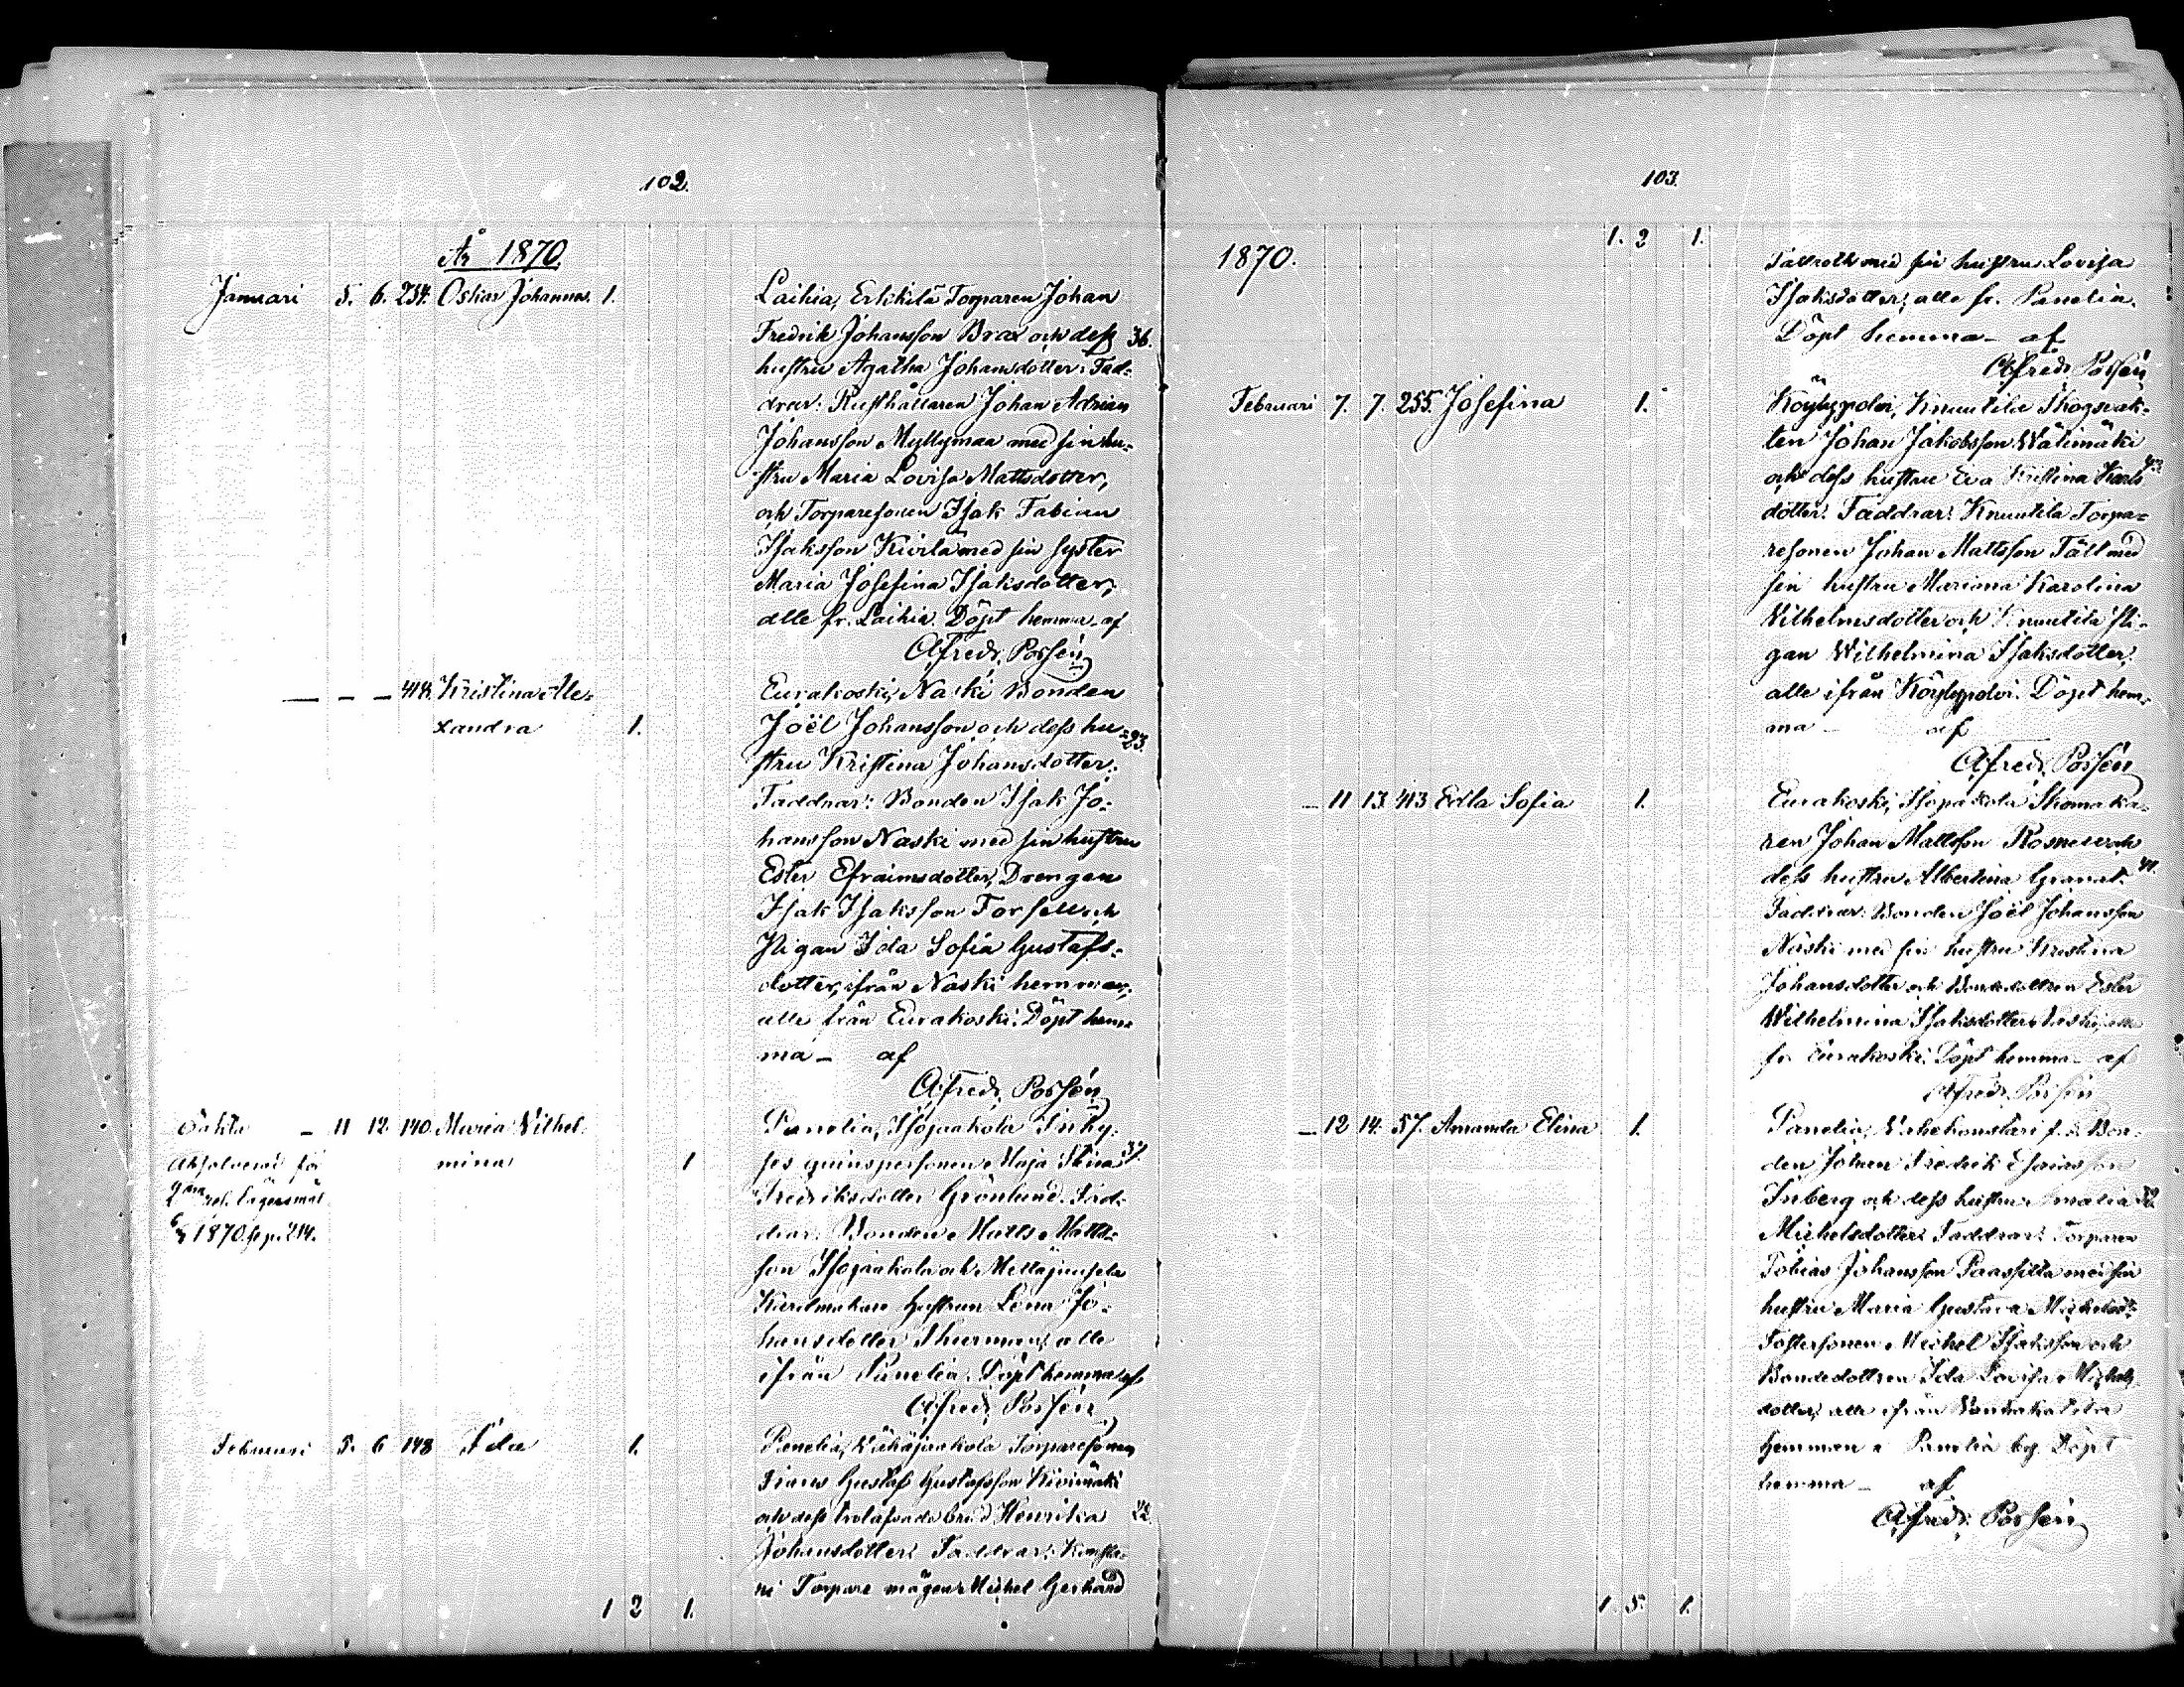 102.
År 1870.
Januari 5. 6. 254. Oskar Johannes. 1. Laihia, Erkkilä Torparen Johan
Fredrik Johansson Brax och dess 36.
hustru Agatha Johansdotter. Fad-
drar: Rusthållaren Johan Adrian
Johansson Myllymaa med sin hu-
stru Maria Lovisa Mattsdotter,
och Torparesonen Isak Fabian
Isaksson Kivilä med sin syster
Maria Josefina Isaksdotter,
alle fr. Laihia. Döpt hemma af
Alfred. Possén
— — — 414. Kristina Ale- Eurakoski, Naski Bonden
xandra 1. Joël Johansson och dess hu- 23.
stru Kristina Johansdotter.
Faddrar: Bonden Isak Jo-
hansson Naski med sin hustru
Ester Efraimsdotter, Drengen
Isak Isaksson Forsell och
Pigan Ida Sofia Gustafs-
dotter, ifrån Naski hemman,
alle från Eurakoski. Döpt hem-
ma — af
Alfred. Possén
Oäkta — 11 12 140. Maria Vilhel- Panelia, Isojaakola Inhy-
Absolverad för mina 1 ses qvinspersonen Maja Stina 37.
1870 p. 214. Fredriksdotter Grönlund. Fad-
drar: Bonden Matts Matts-
son Isojaakola och
hustrun Lena Jo-
hansdotter Thurman, alle
ifrån Panelia. Döpt hemma af
Alfred. Possén
Februari 5. 6 148 Ida 1. Panelia, Vähäjaakola Torparesonen
Frans Gustaf Gustafsson Kivimäki
och dess trolofvade brud Henrika 22.
Johansdotter. Faddrar:
Torpare mågen Michel Gerhard
1 2 1.
103.
1. 2 1.
1870. med sin hustru Lovisa
Isaksdotter, alle fr. Panelia.
Döpt hemma — af
Alfred. Possén
Februari 7. 7. 255. Josefina 1. Köylypolvi, Knuutila Skogvak-
ten Johan Jakobsson Välimäki
och dess hustru Eva Kristina Karls
dotter. Faddrar: Knuutila Torpa-
resonen Johan Mattsson Fält med
sin hustru Mariana Karolina
Vilhelmsdotter och Knuutila Pi-
gan Wilhelmina Isaksdotter,
alle ifrån Köylypolvi. Döpt hem-
ma — af
Alfred. Possén
— 11 13. 413 Edla Sofia 1. Eurakoski, Isopakola Skomaka-
ren Johan Mattsson Rosnell och
dess hustru Albertina Granat. 41.
Faddrar: Bonden Joël Johansson
Naski med sin hustru Kristina
Johansdotter och Bondedottren Ester
Wilhelmina Isaksdotter Naski, alle
fr. Eurakoski. Döpt hemma — af
Alfred. Possén
— 12 14. 57. Amanda Elina 1. Panelia, f. d. Bon-
den Johan Fredrik Esaiasson
Inberg och dess hustru Amalia 32.
Michelsdotter. Faddrar: Torparen
Tobias Johansson Paassilta med sin
hustru Maria Gustava Michelsd:r
Fostersonen Michel Isaksson och
Bondedottren Ida Lovisa Michels
dotter, alle ifrån
hemman i Panelia by. Döpt
hemma — af
Alfred. Possén
1. 5. 1.